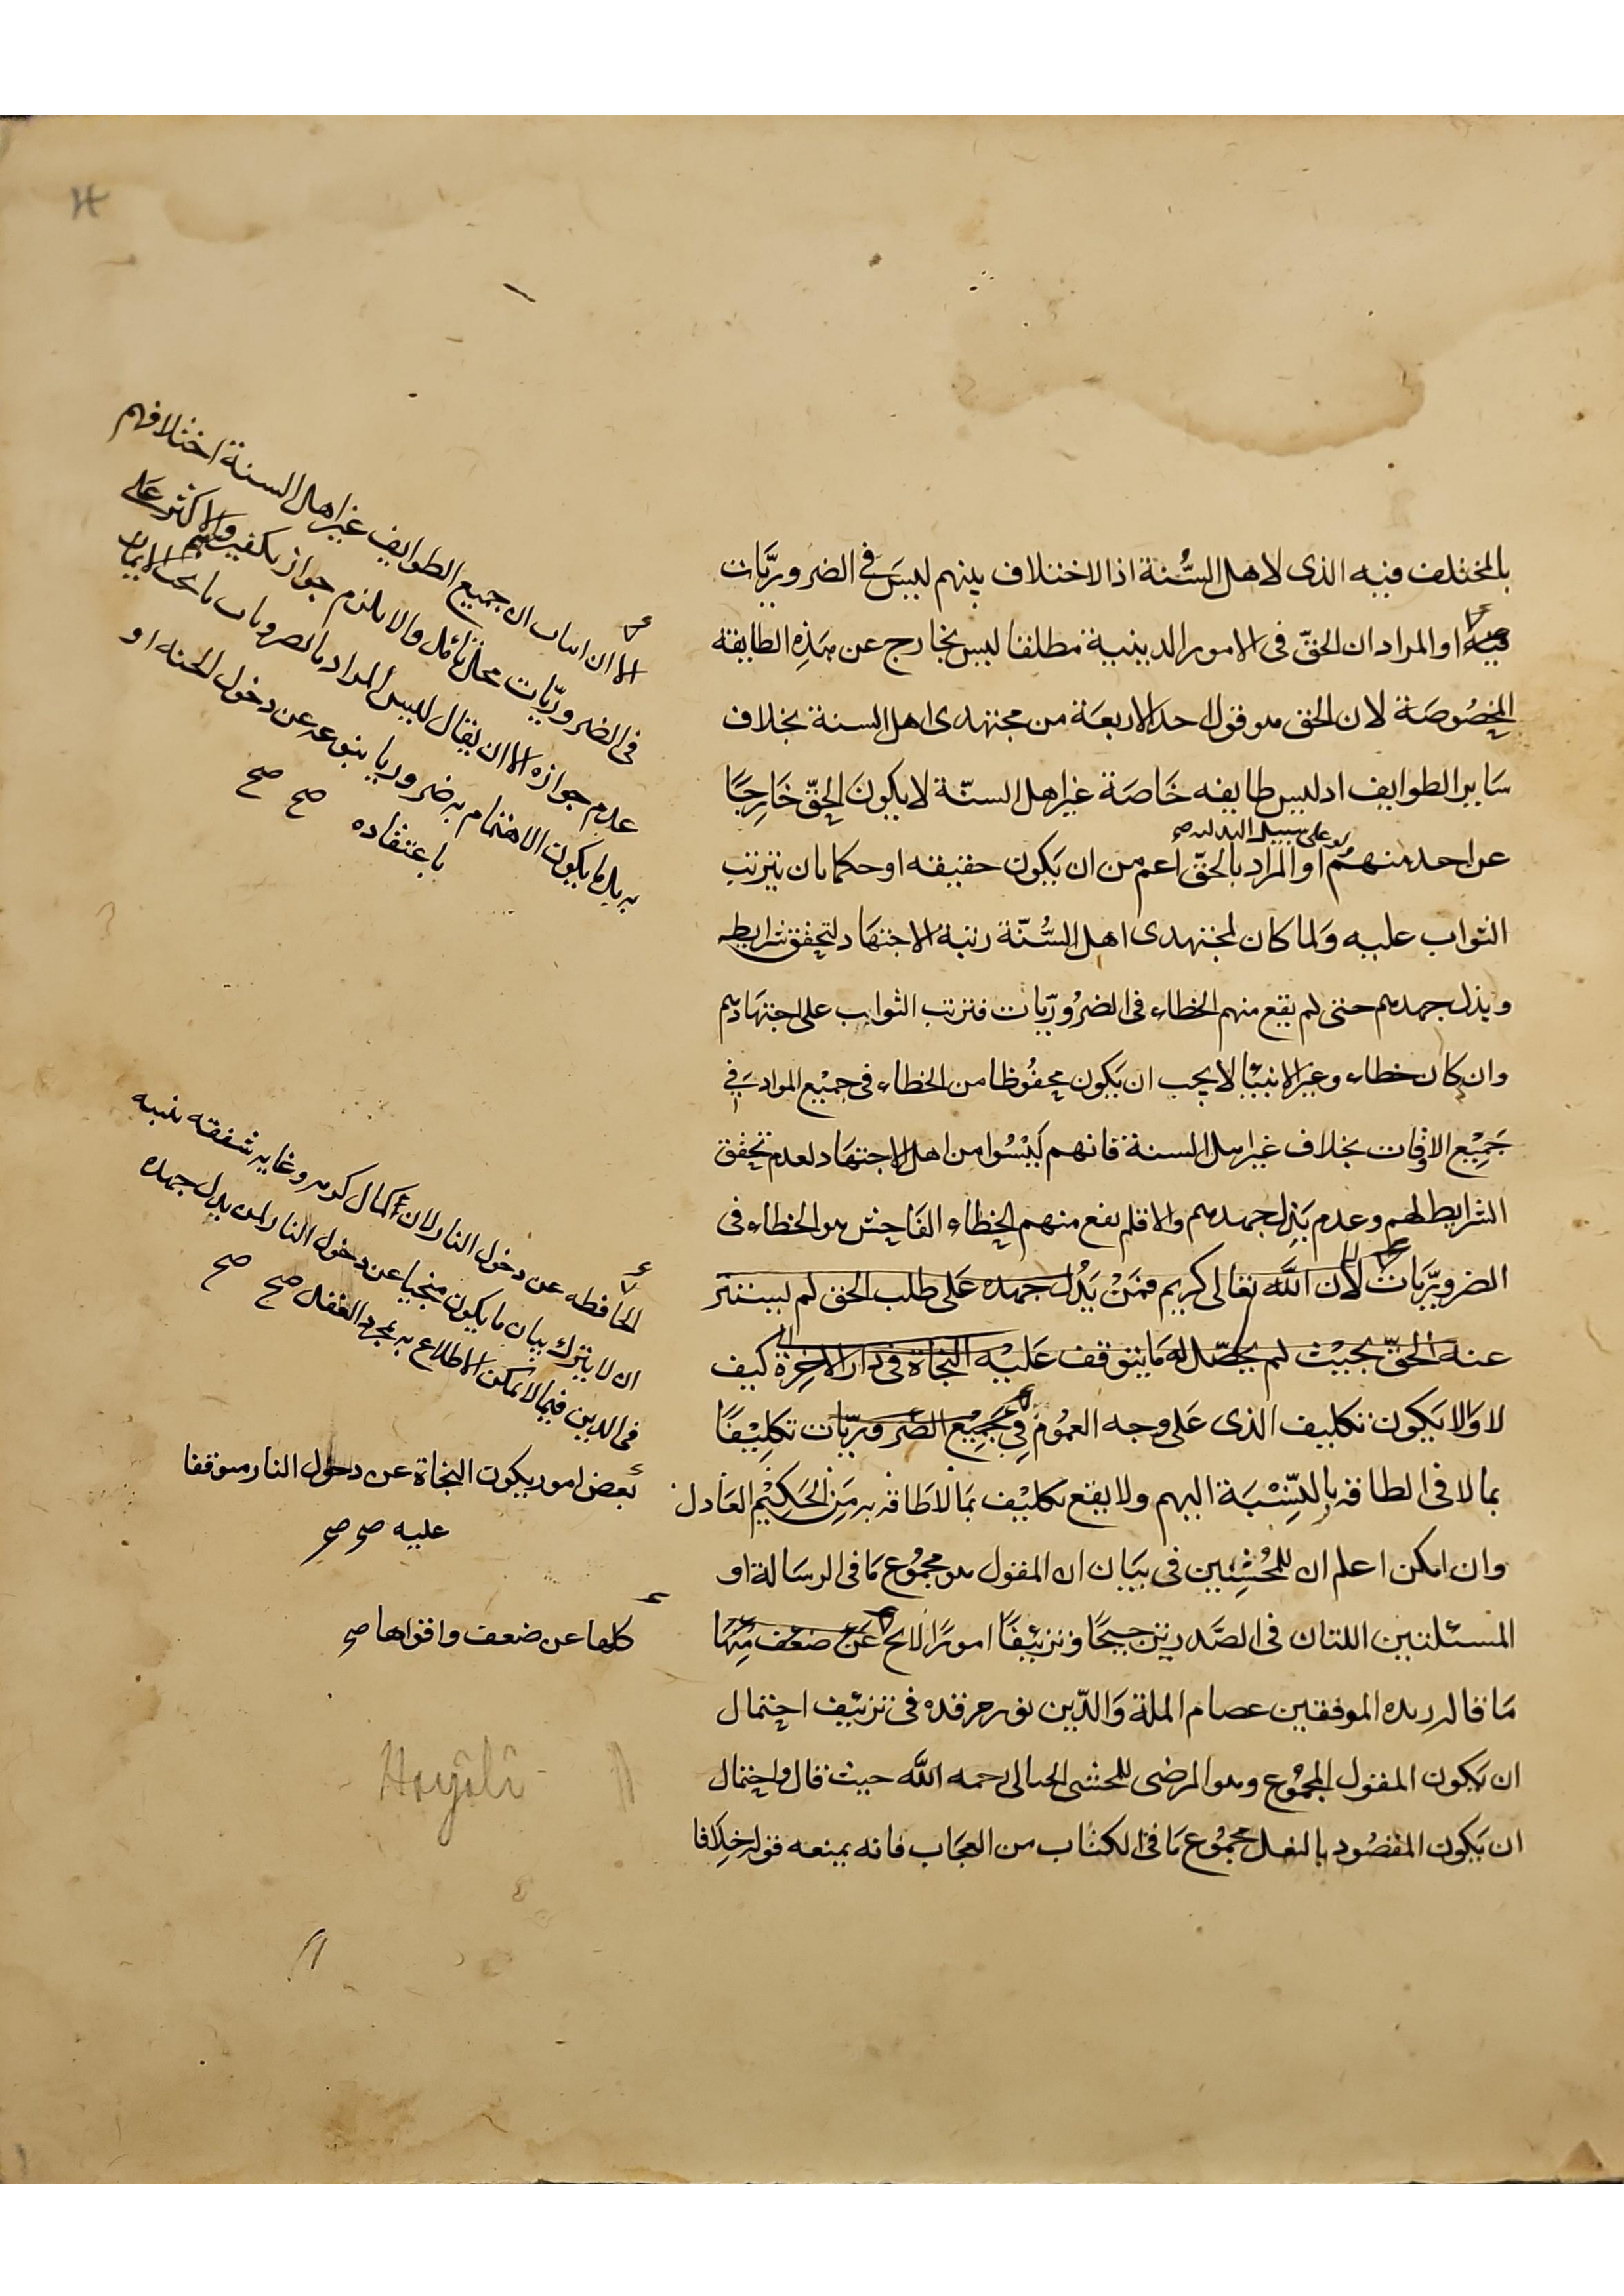 بالمختلف فيه الذى لاهل السُّنة اذ الاختلاف بينهم ليسَ فى الضروريَّات
فيه او المراد ان الحقّ فى الامور الدينية مطلقا ليس بخارج عن هذِه الطايفة
المخصُوصَة لان الحق هو قول احد الاربعَة من مجتهدى اهل السنة بخلاف
سَاير الطوايف اذ ليس طايفه خَاصَة غير اهل السنّة لا يكونَ الحقّ خَارِجًا
ولو على سبيل البدلية صح
عن احد منهُم او المراد بالحقّ أعم من ان يَكون حقيقه او حكما بان يترتب
الثواب عليه وَلما كان لمجتهدى اهل السُّنّة رتبة الاجتهَاد لتحقق شرايطه
وبذل جهدهم حتى لم يقع منهم الخطاء فى الضرُوريّات فترتب الثواب على اجتهَادهم
وان كان خطاء وغير الانبيَا لا يجب ان يَكون محفُوظا من الخطاء فى جميْع المواد فى
جَمِيْع الاوقات بخلاف غير اهل السنة فانهم ليْسُوا من اهل الاجتهَاد لعدم تحقق
الشرايط لهم وعدم بَذل جهدهم والا فلم يقع منهم الخطاء الفَاحِش هو الخطاء فى
الضروريَّات لان اللَّه تعالى كريم فمَنْ بَذل جهده عَلى طلب الحق لم يستتر
عنه الحقّ بحيْث لم يحصّل له مَا يتوقف عَليْه النجاة فى دار الاخِرة كيف
لا وَالا يَكون تكليف الذى عَلى وجه العمُوم فِى جَمِيْع الضرُوريّات تكلِيْفًا
بما لا فى الطاقه بِالنّسْبَة اليهم ولا يقع تكليْف بمَا لاطَاقه به مَن الحَكِيْم العَادل
وان امكن اعلم ان للمُحْشِيين فى بيَان ان المقول هو مجمُوع مَا فى الرسَالة او
المسئلتين اللتان فى الصَّدر ترجيحًا وتزئيفًا امورًا لايح عَن ضعف مِّنهَا
مَا قاله زبده الموفقين عصام الملة وَالدّين نور مرقده فى تزئيف احتمال
ان يَكون المقول المجمُوع وهو المرضى للمحشى الخيالى رحمه اللَّه حيث قال واحتمال
ان يَكون المقصُود بالنقل مجمُوع مَا فى الكتاب من العجَاب فانه يمنعه قوله خِلافا
الا ان اثبات ان جميع الطوايف غير اهل السنة اختلافهم
فى الضروريّات محل تأمّل والا يلزم جواز تكفيرهم والاكثر على
عدم جوازه الا ان يقال ليس المراد بالضروريات ما يجب الايمان
به بل ما يكون الاهتمام به ضروريا ينبوعه عن دخول الجنه او
باعتقاده صح صح
المحافظه عن دخول النار لان كمال كرمه وغايه شفقه نبيه
ان لا يترك بيان ما يكون منجيا عن دخول النار لمن بذل جهده
فى الدين فيما لا يمكن الاطلاع به بمجرد العقل صح صح
بعض امور يكون النجاة عن دخول النار موقفا
عليه صح صح
كلها عن ضعف واقواها صح
Hayâlî